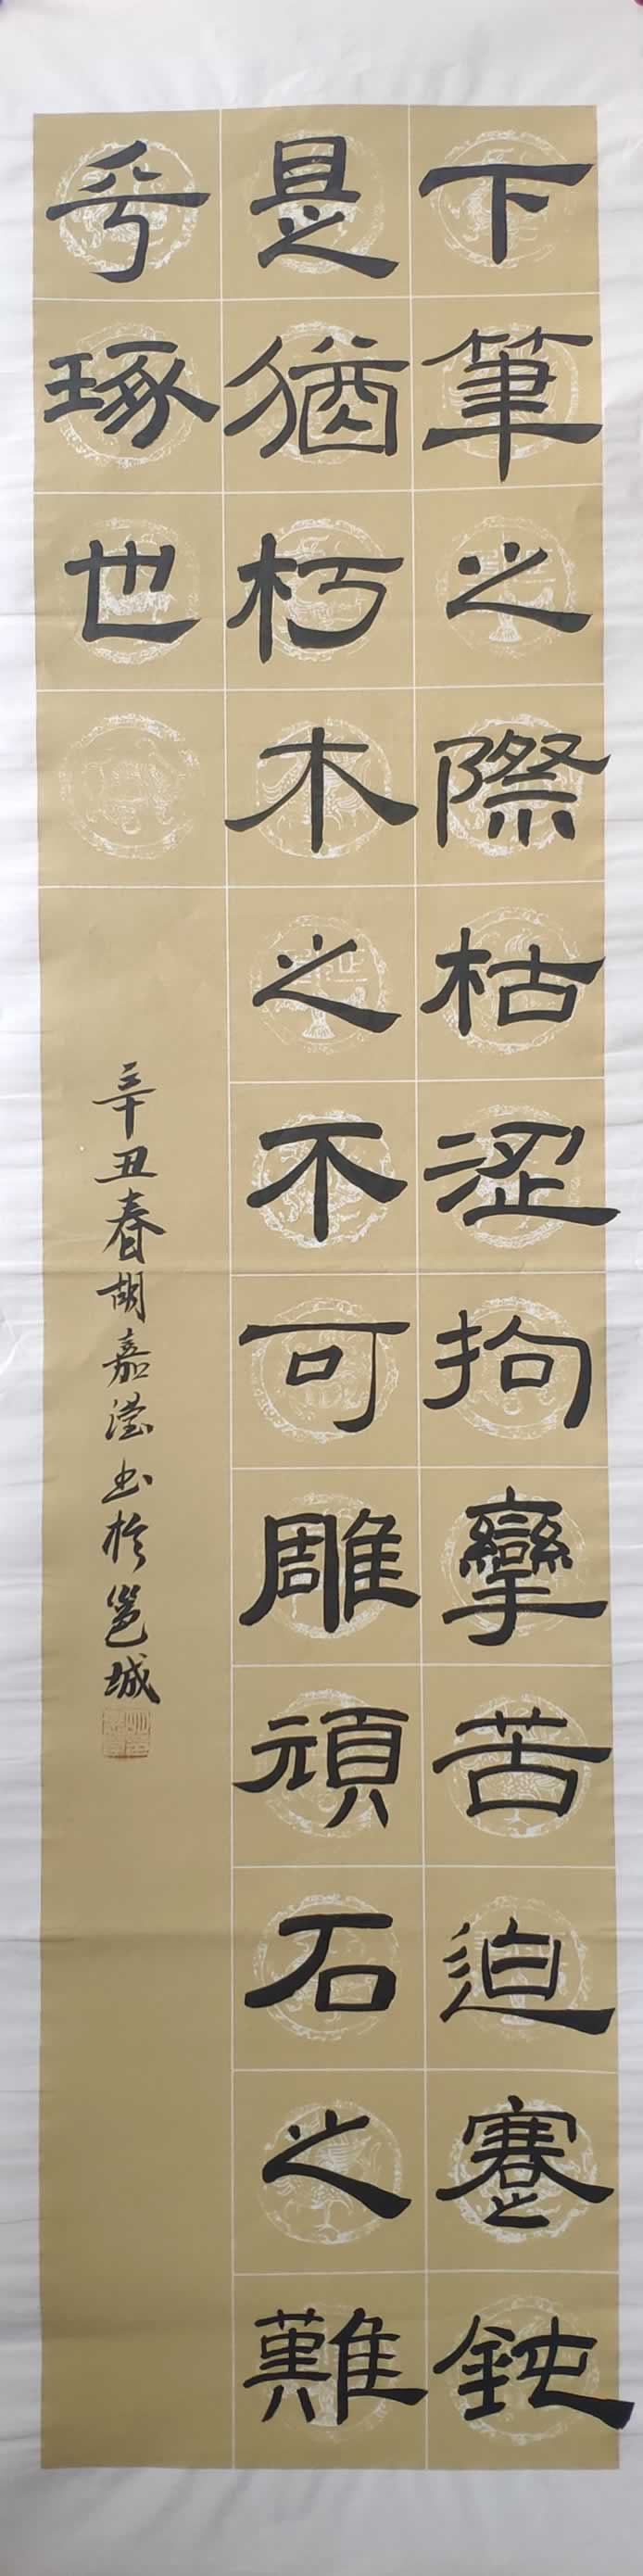 下筆之際枯澀拘攣苦迫蹇鈍
是猶朽木之不可雕頑石之難
乎琢也
辛丑春胡嘉瀅书於邕城